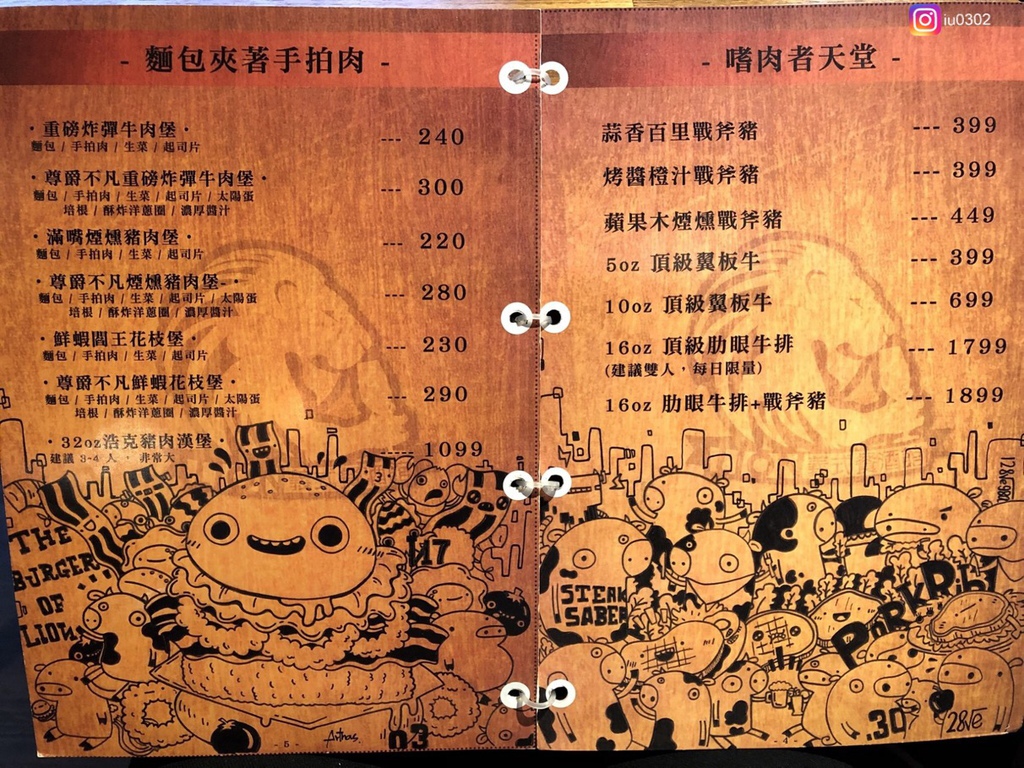 iu0302
- 麵包夾著手拍肉 -
·重磅炸彈牛肉堡· --- 240
麵包 / 手拍肉 / 生菜 / 起司片
·尊爵不凡重磅炸彈牛肉堡· --- 300
麵包 / 手拍肉 / 生菜 / 起司片 / 太陽蛋
培根 / 酥炸洋蔥圈 / 濃厚醬汁
·滿嘴煙燻豬肉堡· --- 220
麵包 / 手拍肉 / 生菜 / 起司片
·尊爵不凡煙燻豬肉堡· --- 280
麵包 / 手拍肉 / 生菜 / 起司片 / 太陽蛋
培根 / 酥炸洋蔥圈 / 濃厚醬汁
·鮮蝦閻王花枝堡 --- 230
麵包 / 手拍肉 / 生菜 / 起司片
·尊爵不凡鮮蝦花枝堡· --- 290
麵包 / 手拍肉 / 生菜 / 起司片 / 太陽蛋
培根 / 酥炸洋蔥圈 / 濃厚醬汁
·32oz浩克豬肉漢堡· --- 1099
建議 3-4 人 · 非常大
THE
BURGER
OF
LION
- 5 -
- 嗜肉者天堂 -
蒜香百里戰斧豬 --- 399
烤醬橙汁戰斧豬 --- 399
蘋果木煙燻戰斧豬 --- 449
5oz 頂級翼板牛 --- 399
10oz 頂級翼板牛 --- 699
16oz 頂級肋眼牛排 --- 1799
(建議雙人，每日限量)
16oz 肋眼牛排+戰斧豬 --- 1899
STEAK
SABER
PORKRib
.30
- 4 -